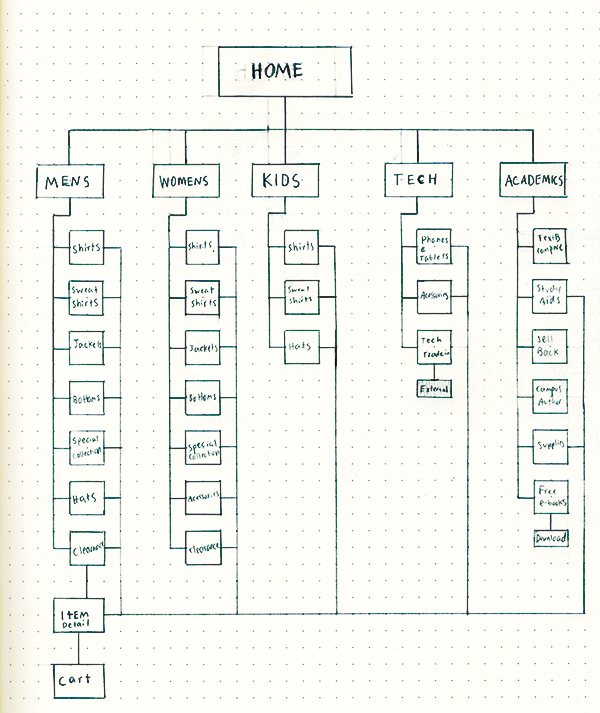 HOME
MENS
WOMENS
KIDS
TECH
ACADEMICS
Shirts
Sweat
Shirts
Jackets
Bottoms
Special
Collection
Hats
Clearance
Shirts
Sweat
Shirts
Jackets
Bottoms
Special
Collection
Accessories
Clearance
Shirts
Sweat
Shirts
Hats
Phones
&
Tablets
Accessories
Tech
Tradein
External
TextB
compare
Study
Aids
Sell
Back
Campus
Author
Supplies
Free
e-books
Download
ITEM
Detail
Cart